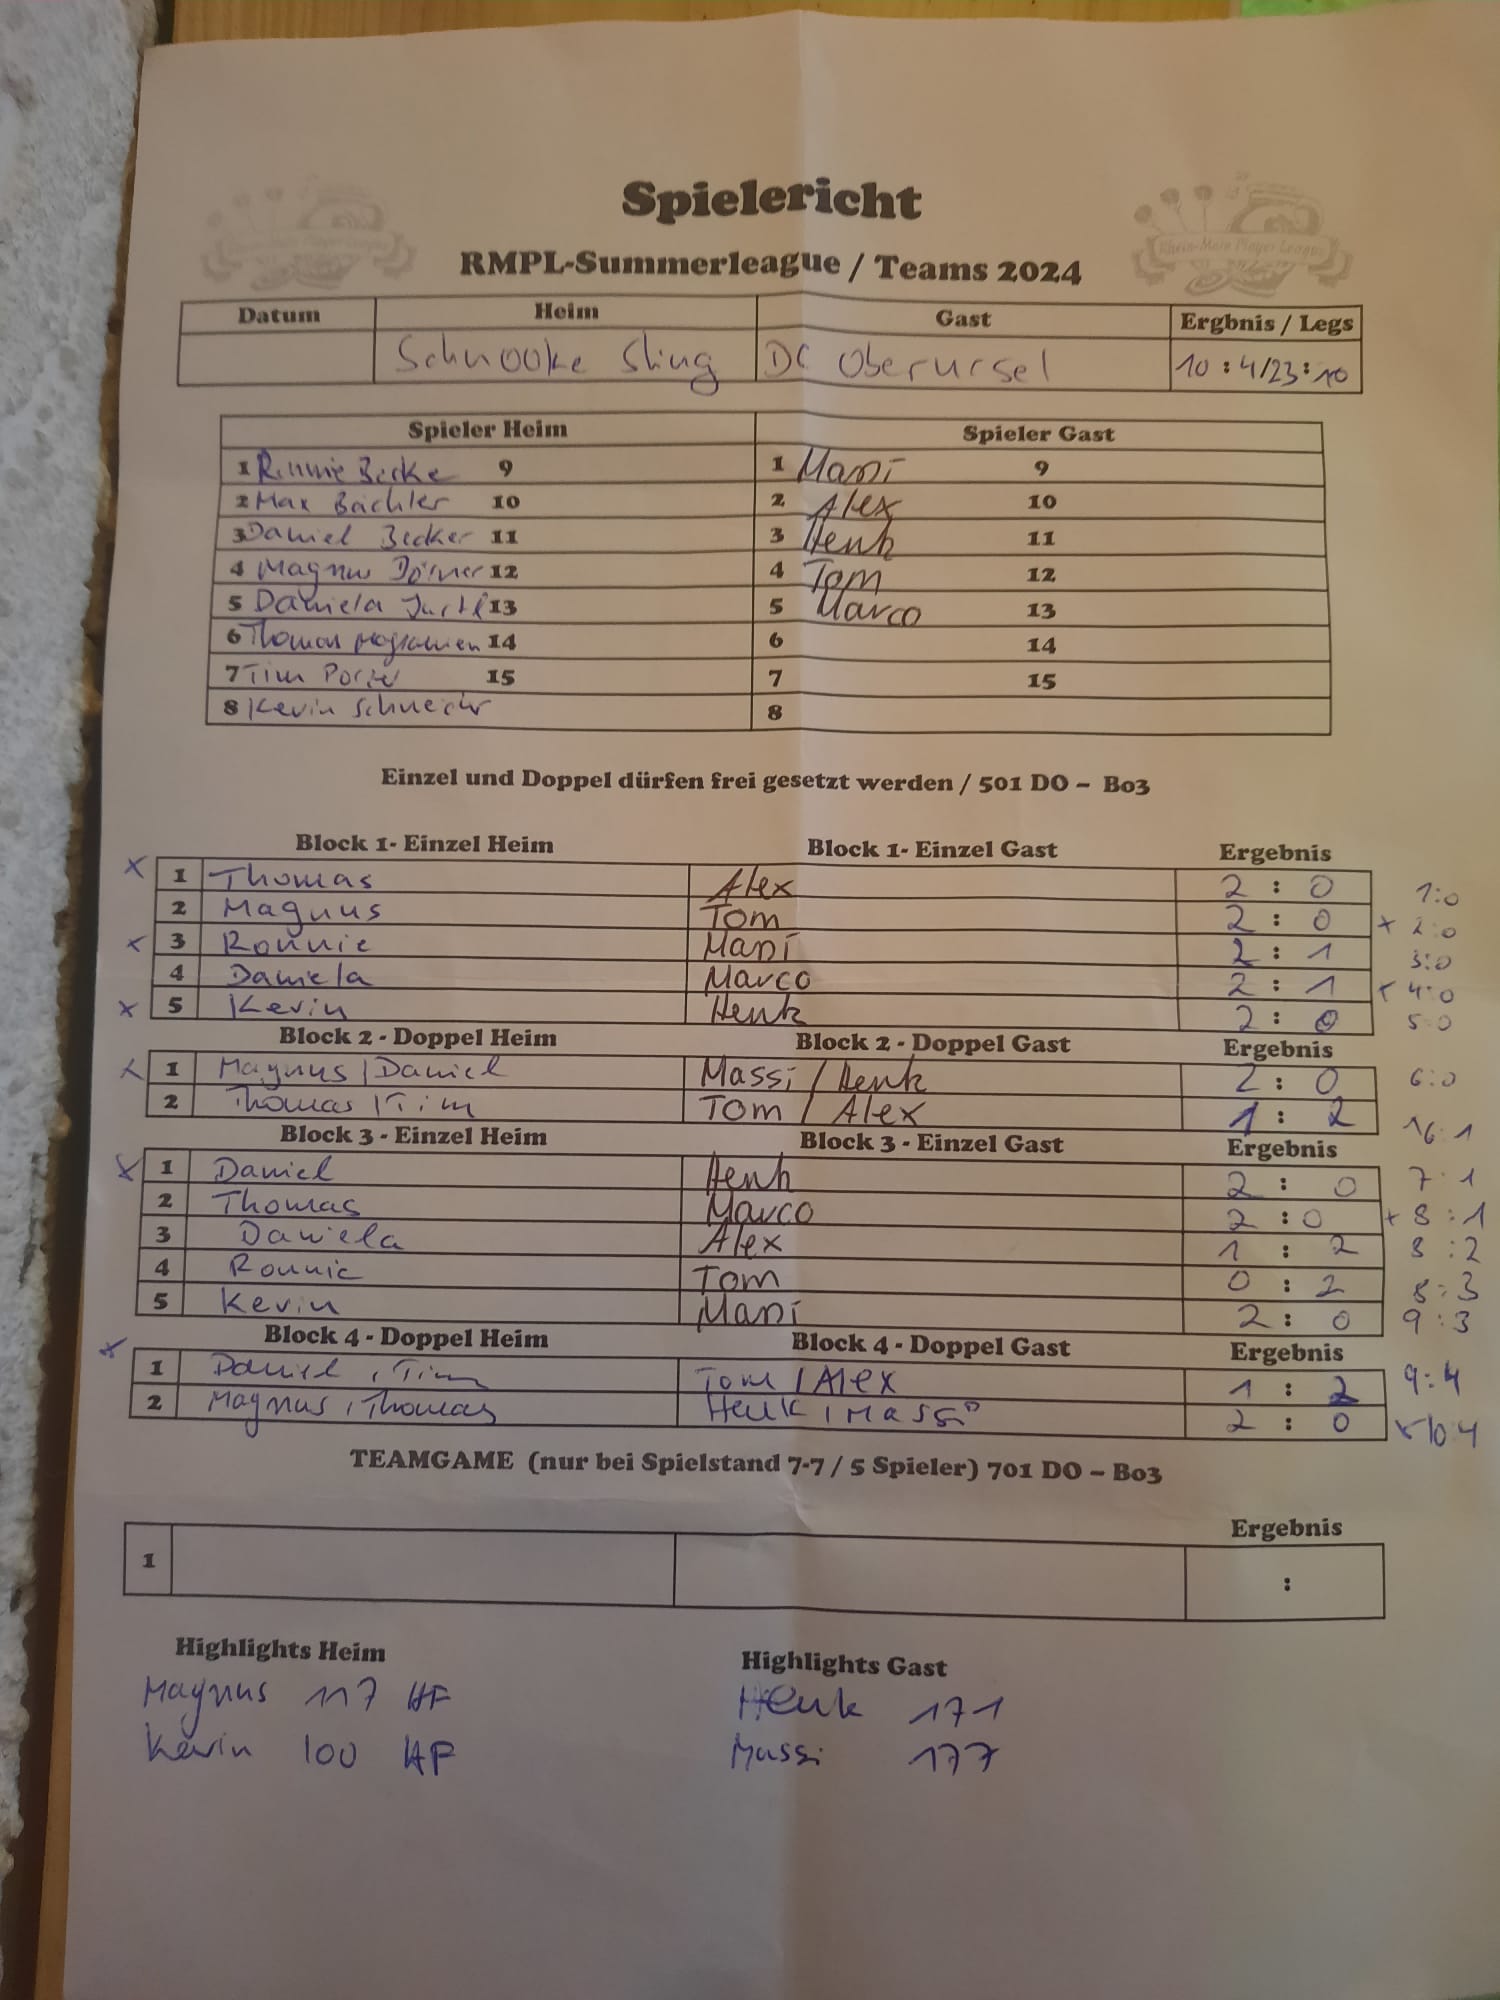 Spielericht
RMPL-Summerleague / Teams 2024
Rhein-Main Player League
Datum Heim Gast Ergbnis / Legs
Schnooke Sting DC Oberursel 10 : 4/23:10
Spieler Heim Spieler Gast
1 Ronnie Becke 9 1 Massi 9
2 Max Bächler 10 2 Alex 10
3 Daniel Becker 11 3 Henk 11
4 Magnus Dörner 12 4 Tom 12
5 Daniela 13 5 Marco 13
6 Thomas 14 6 14
7 Tim 15 7 15
8 Kevin Schneider 8
Einzel und Doppel dürfen frei gesetzt werden / 501 DO – Bo3
Block 1- Einzel Heim Block 1- Einzel Gast Ergebnis
x 1 Thomas Alex 2 : 0 1:0
2 Magnus Tom 2 : 0 x 2:0
x 3 Ronnie Massi 2 : 1 3:0
4 Daniela Marco 2 : 1 x 4:0
x 5 Kevin Henk 2 : 0 5:0
Block 2 - Doppel Heim Block 2 - Doppel Gast Ergebnis
x 1 Magnus / Daniel Massi / Henk 2 : 0 6:0
2 Thomas / Tim Tom / Alex 1 : 2 6:1
Block 3 - Einzel Heim Block 3 - Einzel Gast Ergebnis
x 1 Daniel Henk 2 : 0 7:1
2 Thomas Marco 2 : 0 x 8:1
3 Daniela Alex 1 : 2 8:2
4 Ronnie Tom 0 : 2 8:3
5 Kevin Massi 2 : 0 9:3
Block 4 - Doppel Heim Block 4 - Doppel Gast Ergebnis
x 1 Daniel / Tim Tom / Alex 1 : 2 9:4
2 Magnus / Thomas Henk / Massi 2 : 0 x 10:4
TEAMGAME (nur bei Spielstand 7-7 / 5 Spieler) 701 DO – Bo3
Ergebnis
1 :
Highlights Heim Highlights Gast
Magnus 117 HF Henk 171
Kevin 100 HF Massi 177